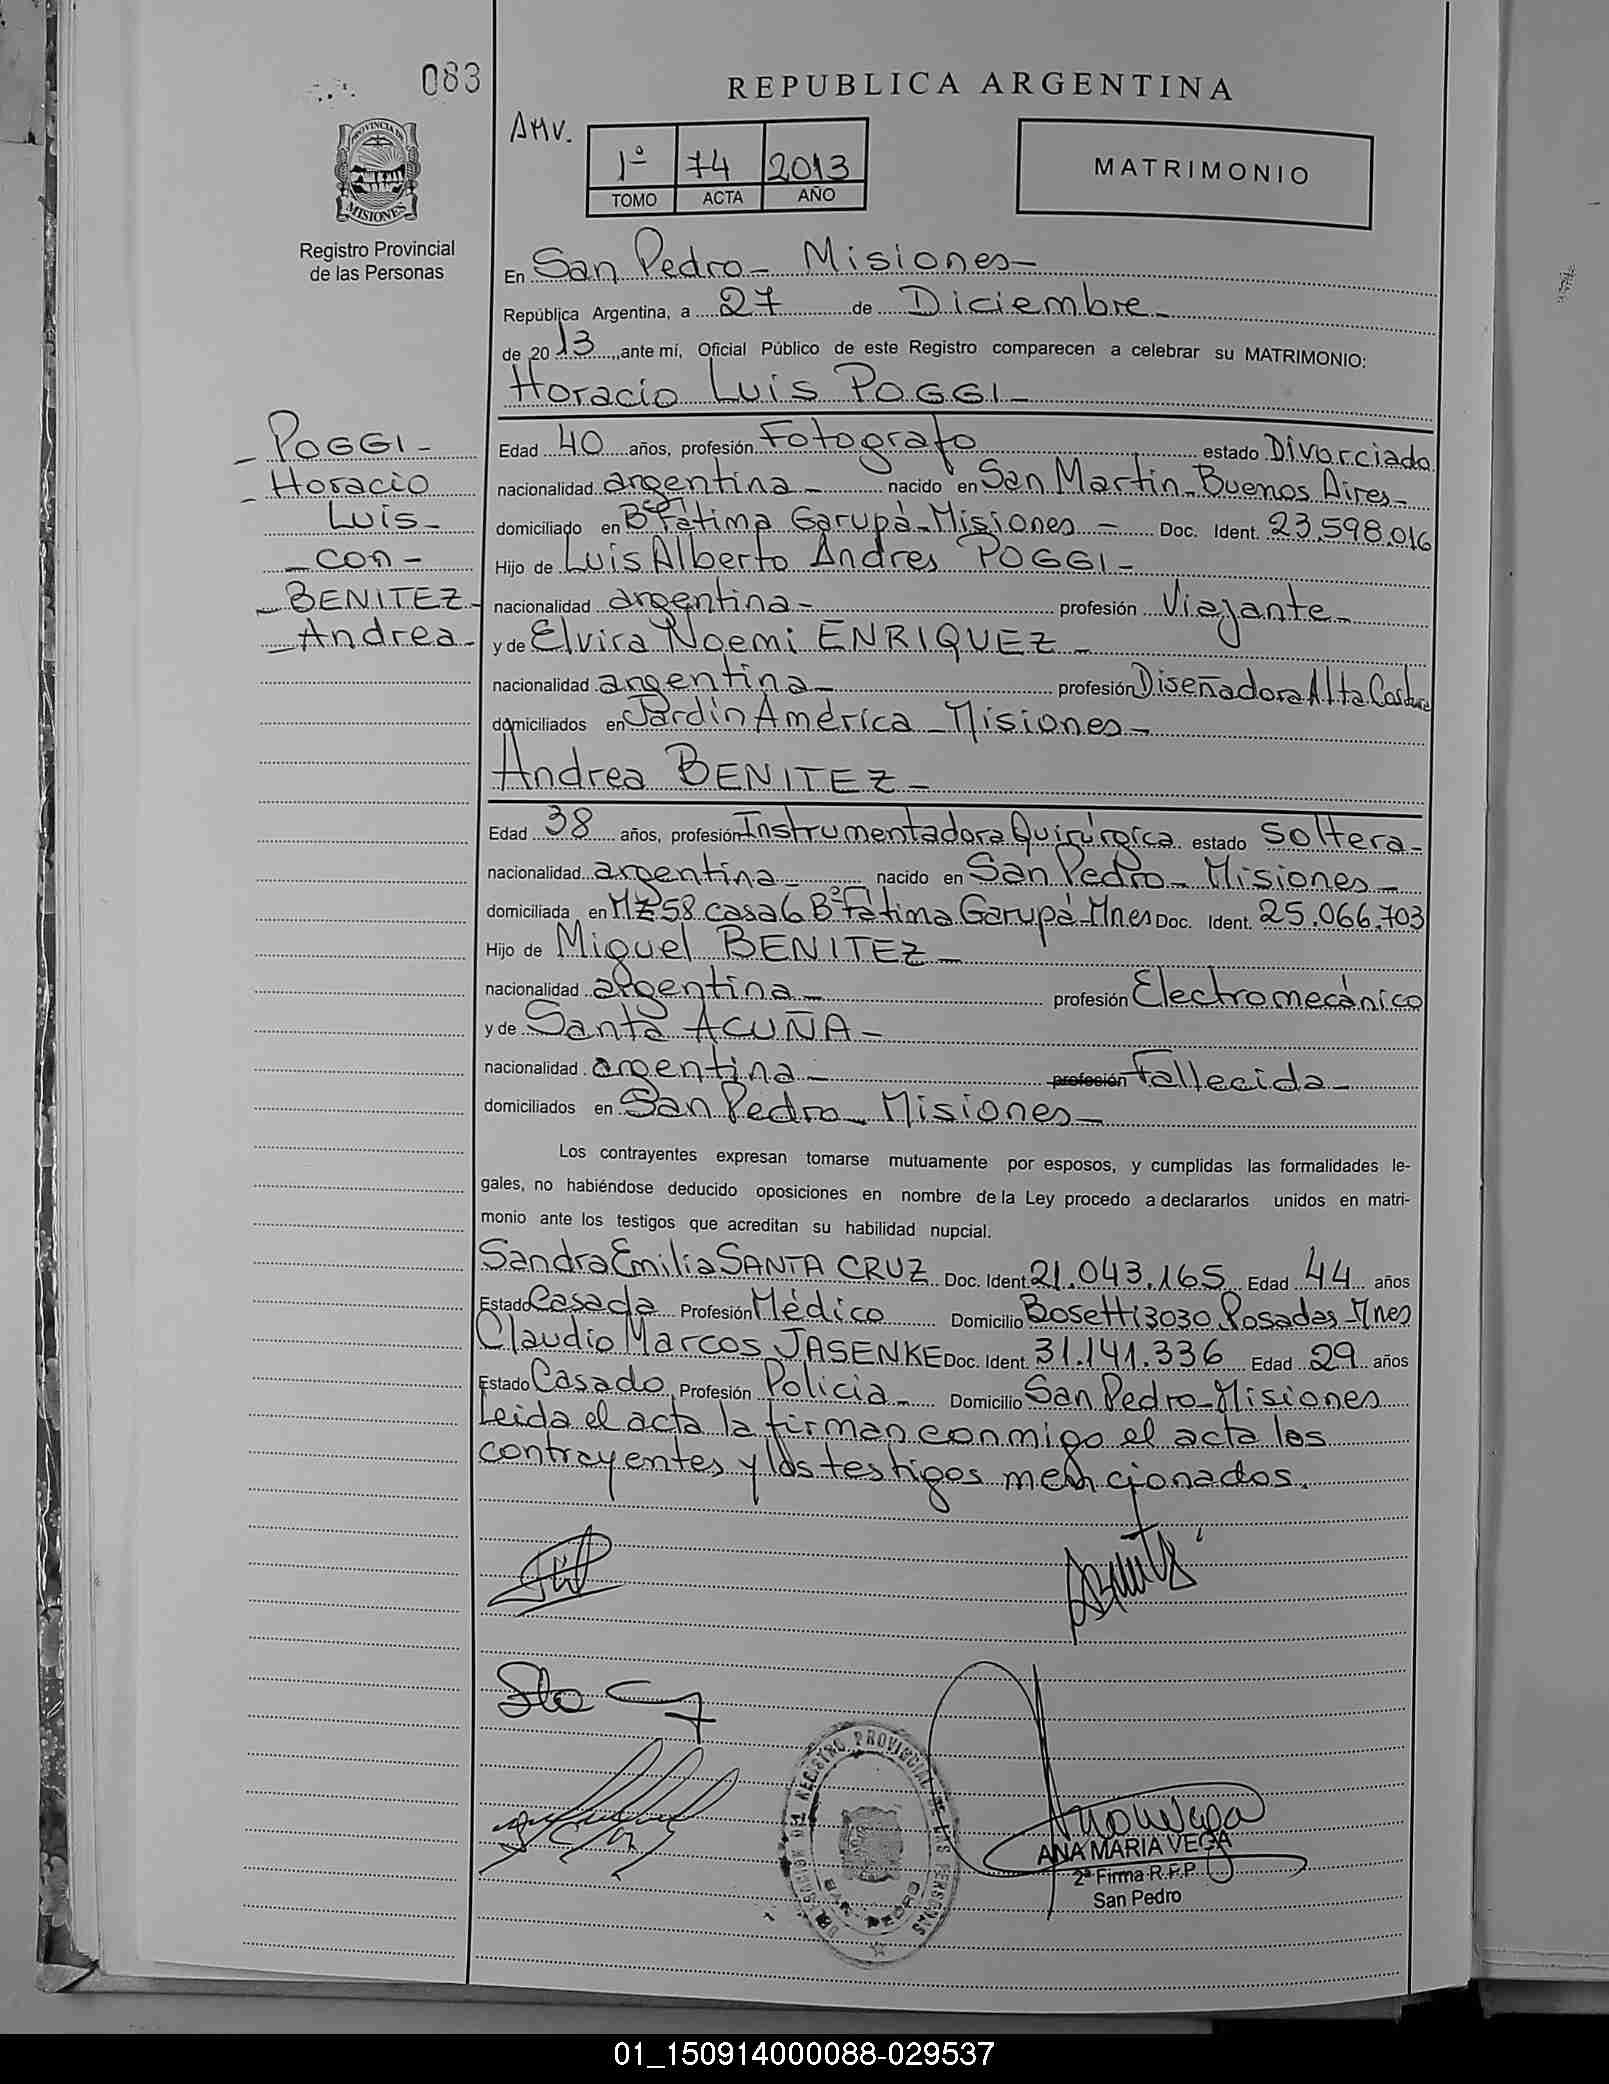 083
REPUBLICA ARGENTINA
AMV.
1º 74 2013
TOMO ACTA AÑO
MATRIMONIO
PROVINCIA DE
MISIONES
Registro Provincial
de las Personas
En San Pedro - Misiones -
República Argentina, a 27 de Diciembre -
de 2013, ante mí, Oficial Público de este Registro comparecen a celebrar su MATRIMONIO:
Horacio Luis POGGI -
- POGGI -
- Horacio
Luis -
- con -
- BENITEZ -
- Andrea -
Edad 40 años, profesión Fotografo estado Divorciado
nacionalidad argentina - nacido en San Martin - Buenos Aires -
domiciliado en Bº Fátima Garupá - Misiones - Doc. Ident. 23.598.016
Hijo de Luis Alberto Andres POGGI -
nacionalidad argentina - profesión Viajante -
y de Elvira Noemi ENRIQUEZ -
nacionalidad argentina - profesión Diseñadora Alta Costura
domiciliados en Jardín América - Misiones -
Andrea BENITEZ -
Edad 38 años, profesión Instrumentadora Quirúrgica estado Soltera -
nacionalidad argentina - nacido en San Pedro - Misiones -
domiciliada en Mz 58 casa 6 Bº Fátima Garupá - Mnes Doc. Ident. 25.066.703
Hijo de Miguel BENITEZ -
nacionalidad argentina - profesión Electromecánico
y de Santa ACUÑA -
nacionalidad argentina - profesión Fallecida -
domiciliados en San Pedro - Misiones -
Los contrayentes expresan tomarse mutuamente por esposos, y cumplidas las formalidades le-
gales, no habiéndose deducido oposiciones en nombre de la Ley procedo a declararlos unidos en matri-
monio ante los testigos que acreditan su habilidad nupcial.
Sandra Emilia SANTA CRUZ Doc. Ident. 21.043.165 Edad 44 años
Estado Casada Profesión Médico Domicilio Bosetti 3030 Posadas - Mnes
Claudio Marcos JASENKE Doc. Ident. 31.141.336 Edad 29 años
Estado Casado Profesión Policia - Domicilio San Pedro - Misiones
Leida el acta la firman conmigo el acta los
contrayentes y los testigos mencionados.
REGISTRO PROVINCIAL DE LAS PERSONAS
SAN PEDRO
ANA MARIA VEGA
2ª Firma R.P.P.
San Pedro
01_150914000088-029537